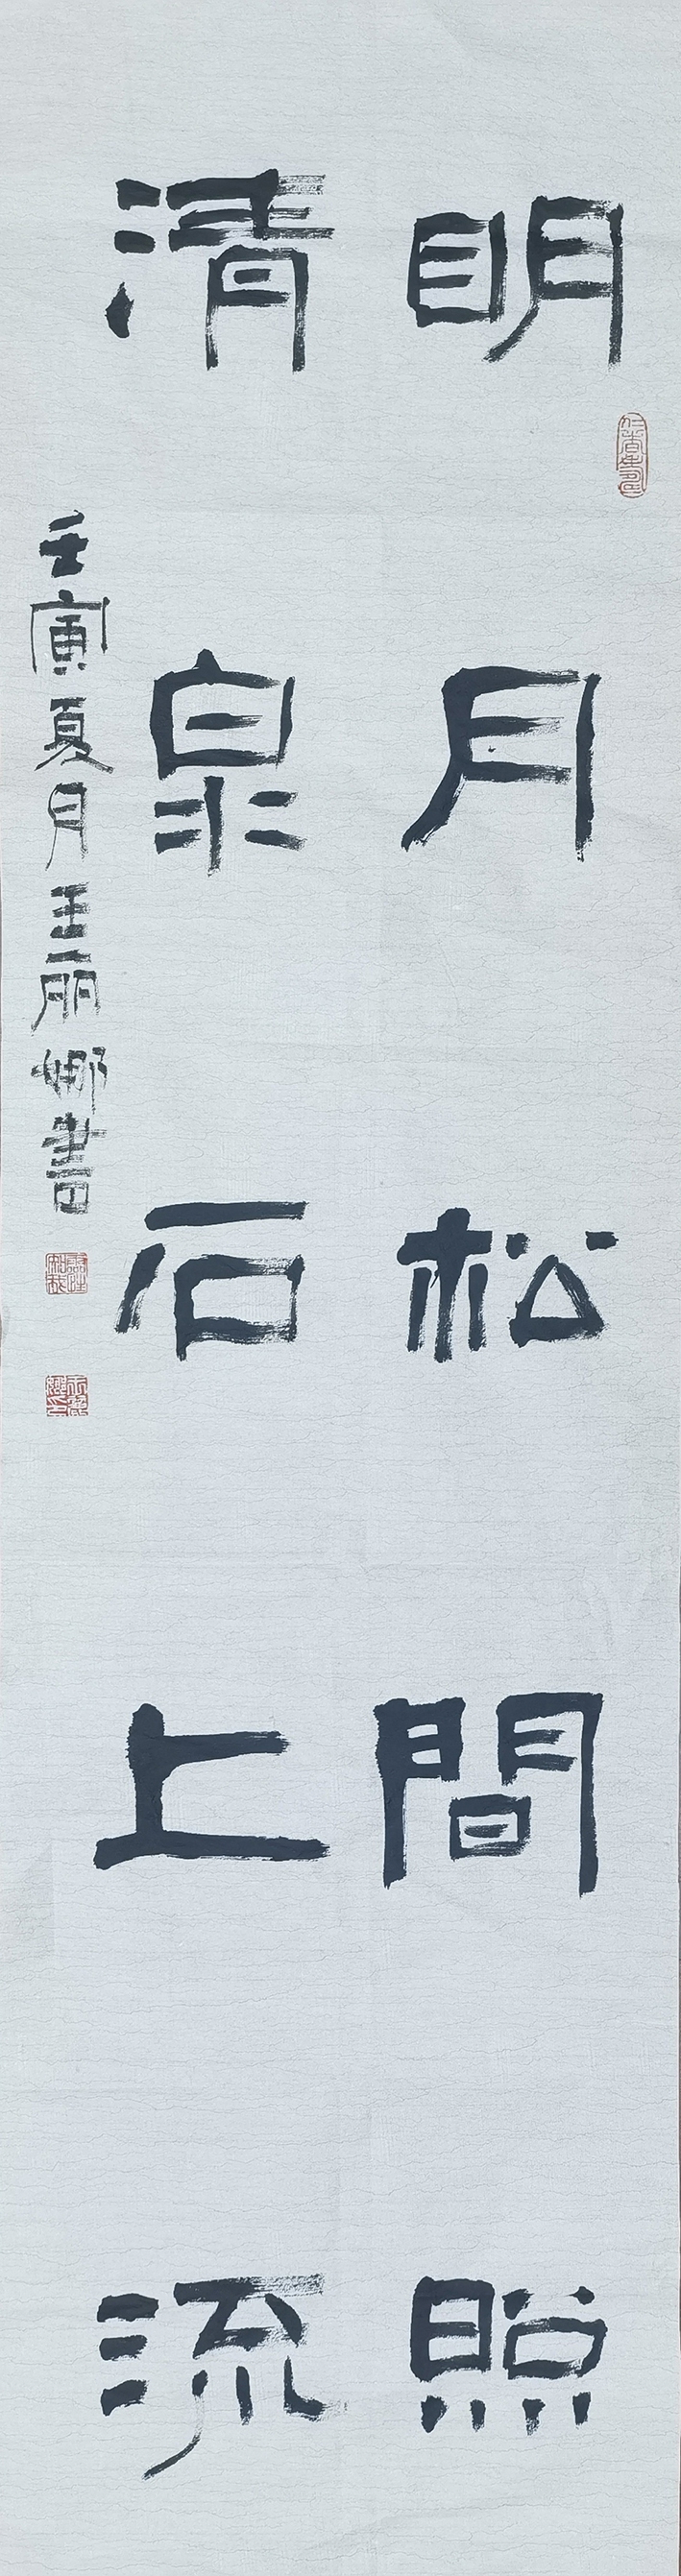 明月松間照
清泉石上流
壬寅夏月王丽娜書